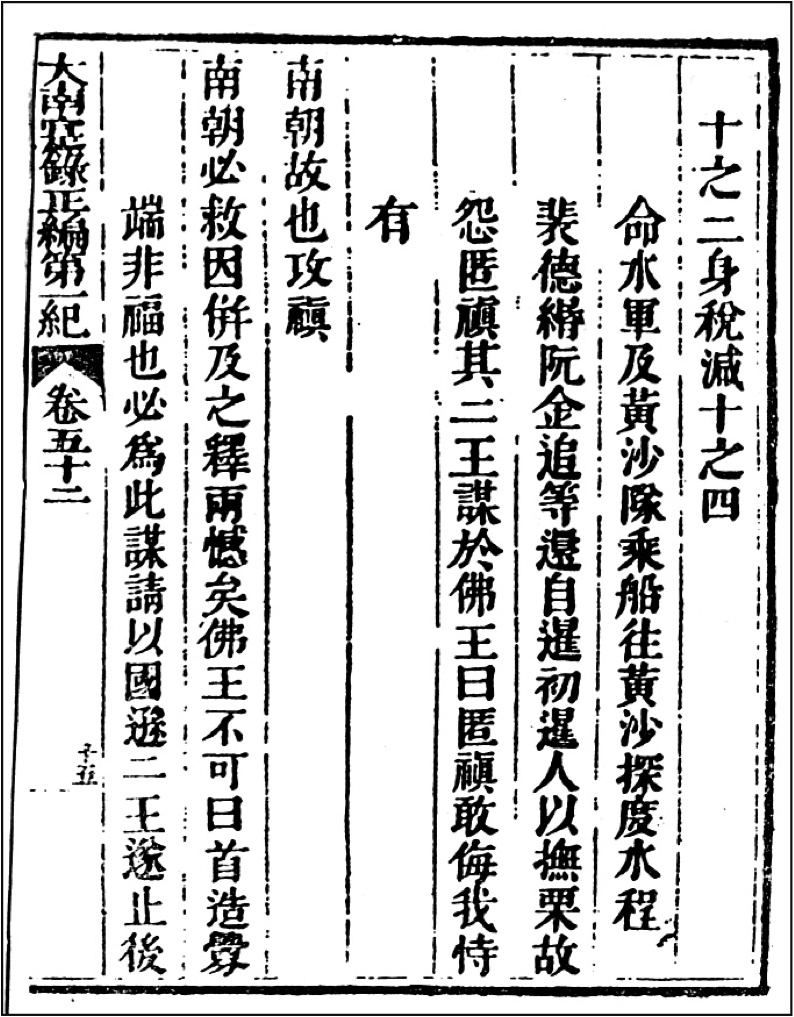 十之二身稅減十之四
命水軍及黃沙隊乘船往黃沙探度水程
裴德緡阮金追等還自暹初暹人以撫栗故
怨匿禛其二王謀於佛王曰匿禛敢侮我恃
有
南朝故也攻禛
南朝必救因併及之釋兩憾矣佛王不可曰首造釁
端非福也必爲此謀請以國遜二王遂止後
大南寔錄正編第一紀 卷五十二
十五